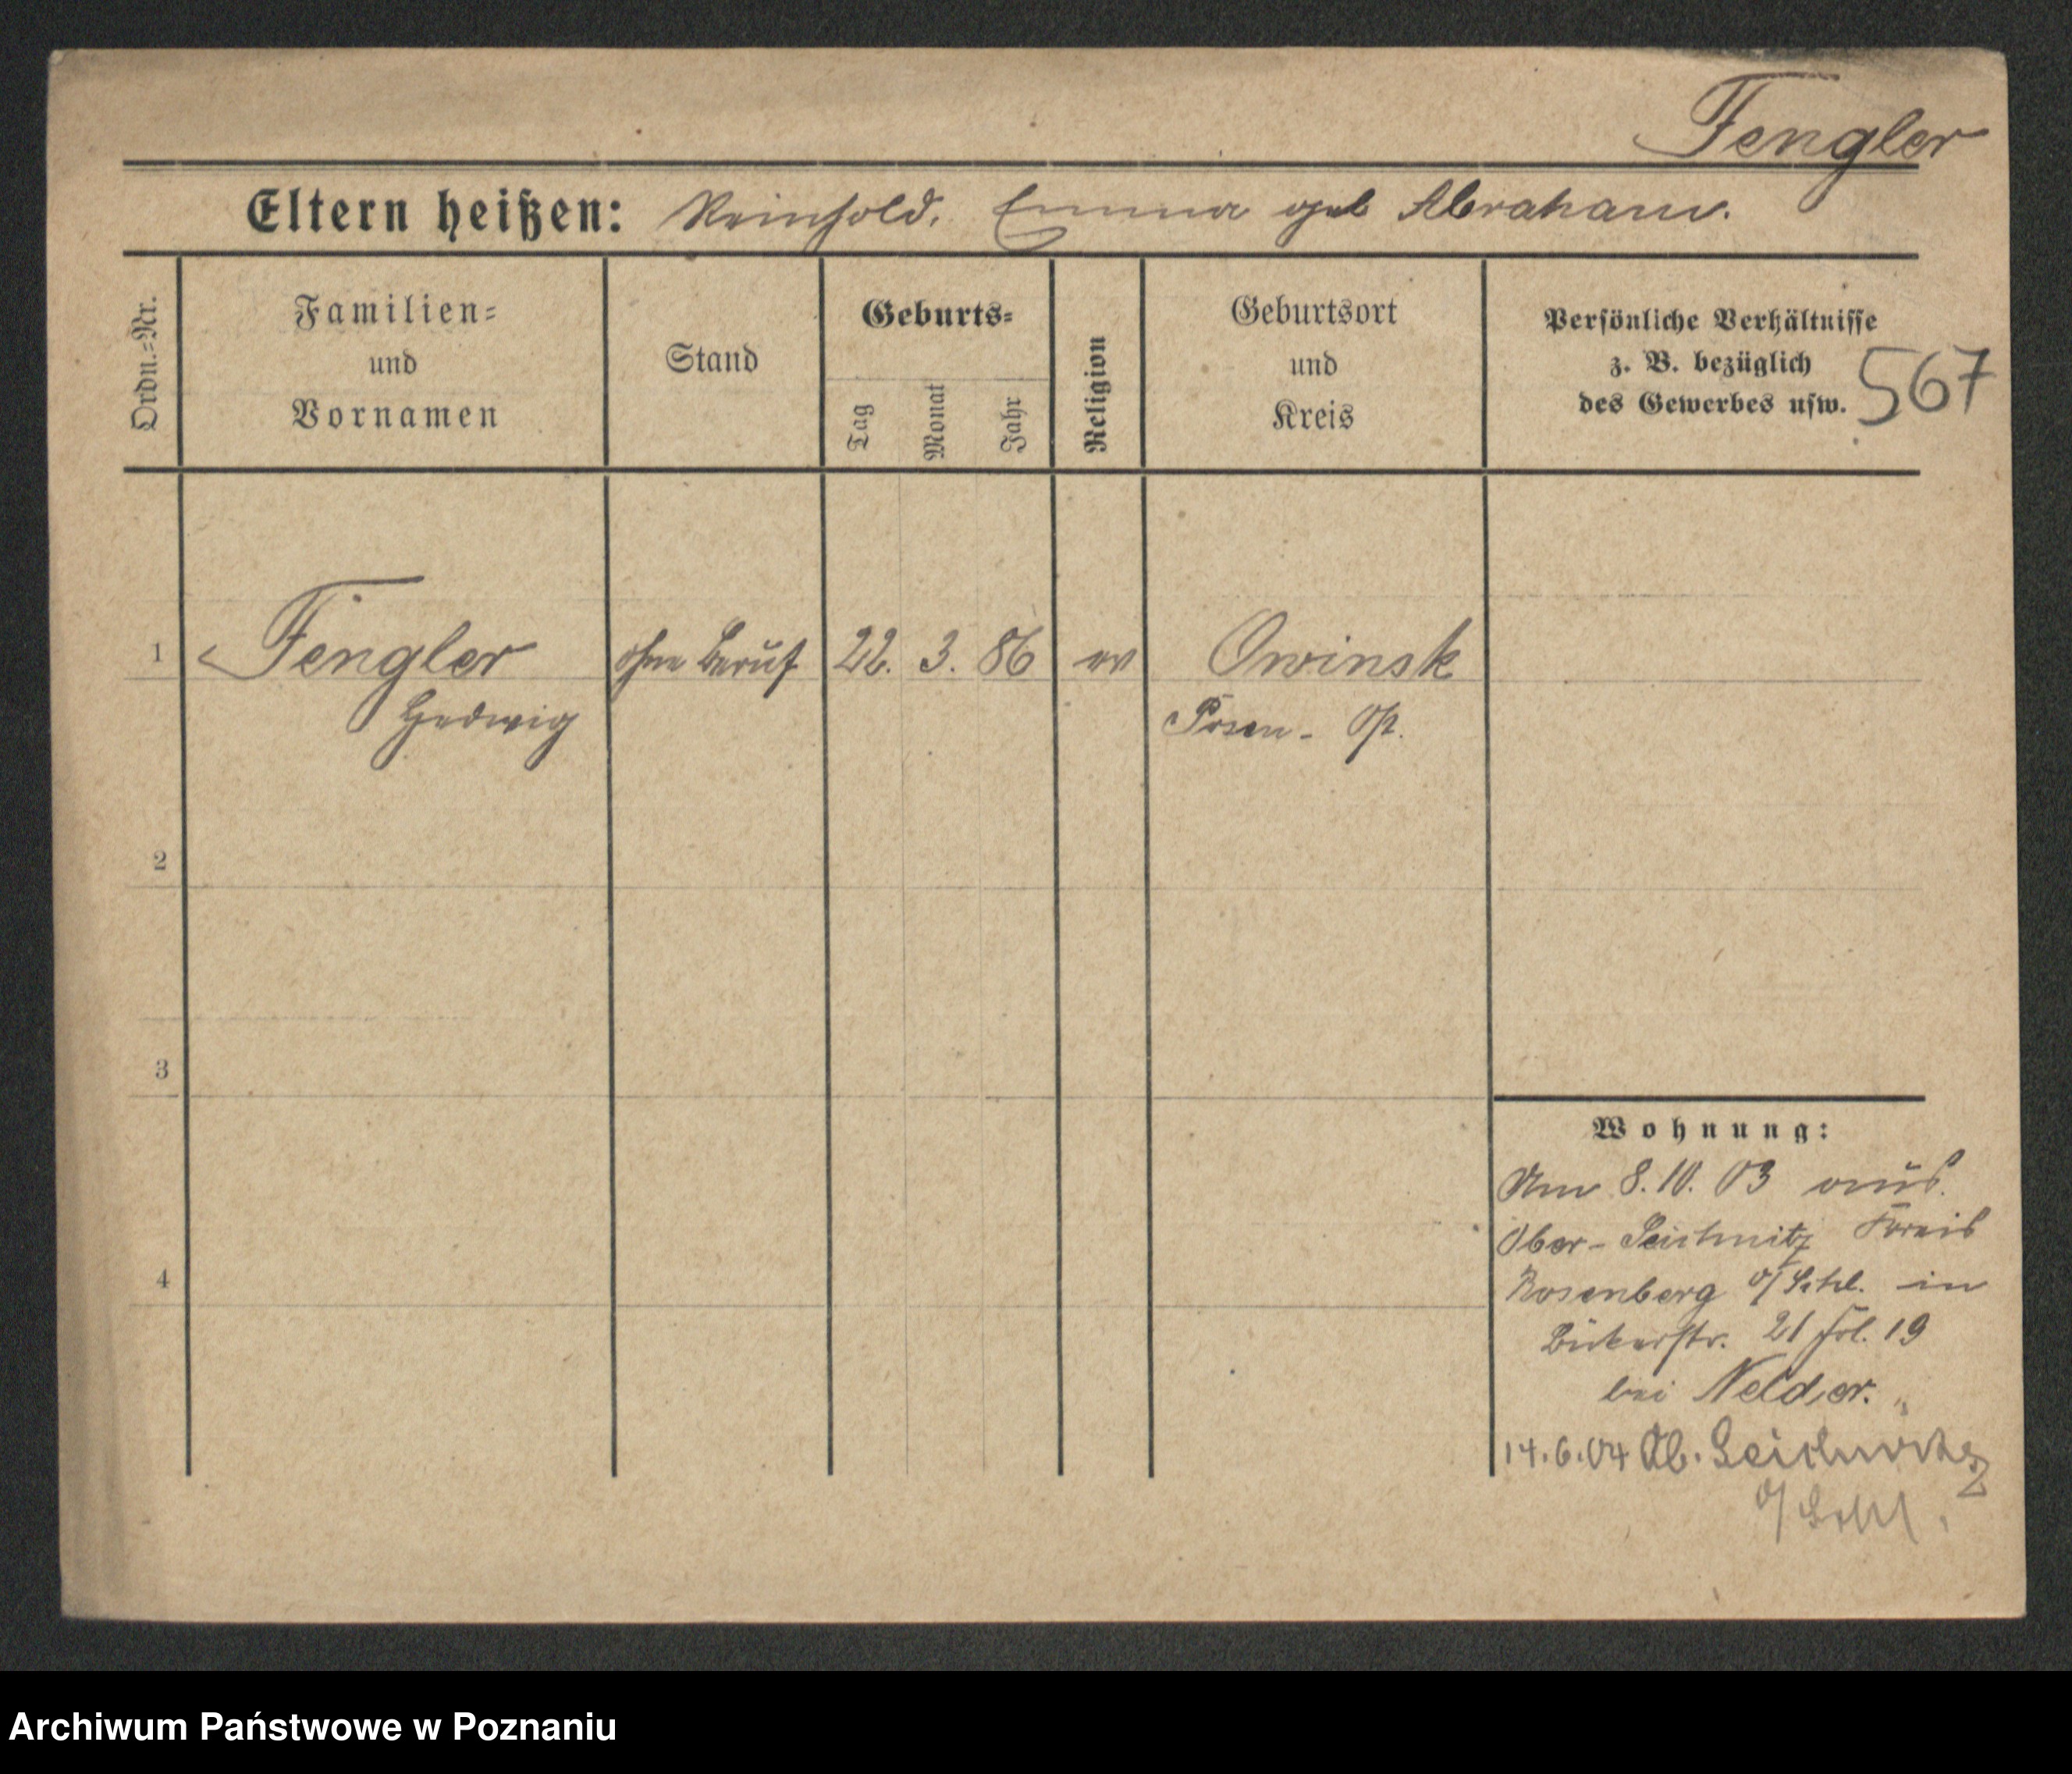 Fengler
Eltern heißen: Reinhold, Emma geb Abraham.
Ordn.=Nr.
Familien=
und
Vornamen
Stand
Geburts=
Tag
Monat
Jahr
Religion
Geburtsort
und
Kreis
Persönliche Verhältnisse
z. B. bezüglich
des Gewerbes usw.
567
1 Fengler ohne Beruf 22. 3. 86 ev Owinsk
Hedwig Posen - Op.
2
3
4
Wohnung:
Am 8.10.03 aus
Ober- Seichwitz Kreis
Rosenberg O/Schl. in
Bäckerstr. 21 fol. 19
bei Nelder.
14.6.04 Ob. Seichwitz
O/Schl.
Archiwum Państwowe w Poznaniu